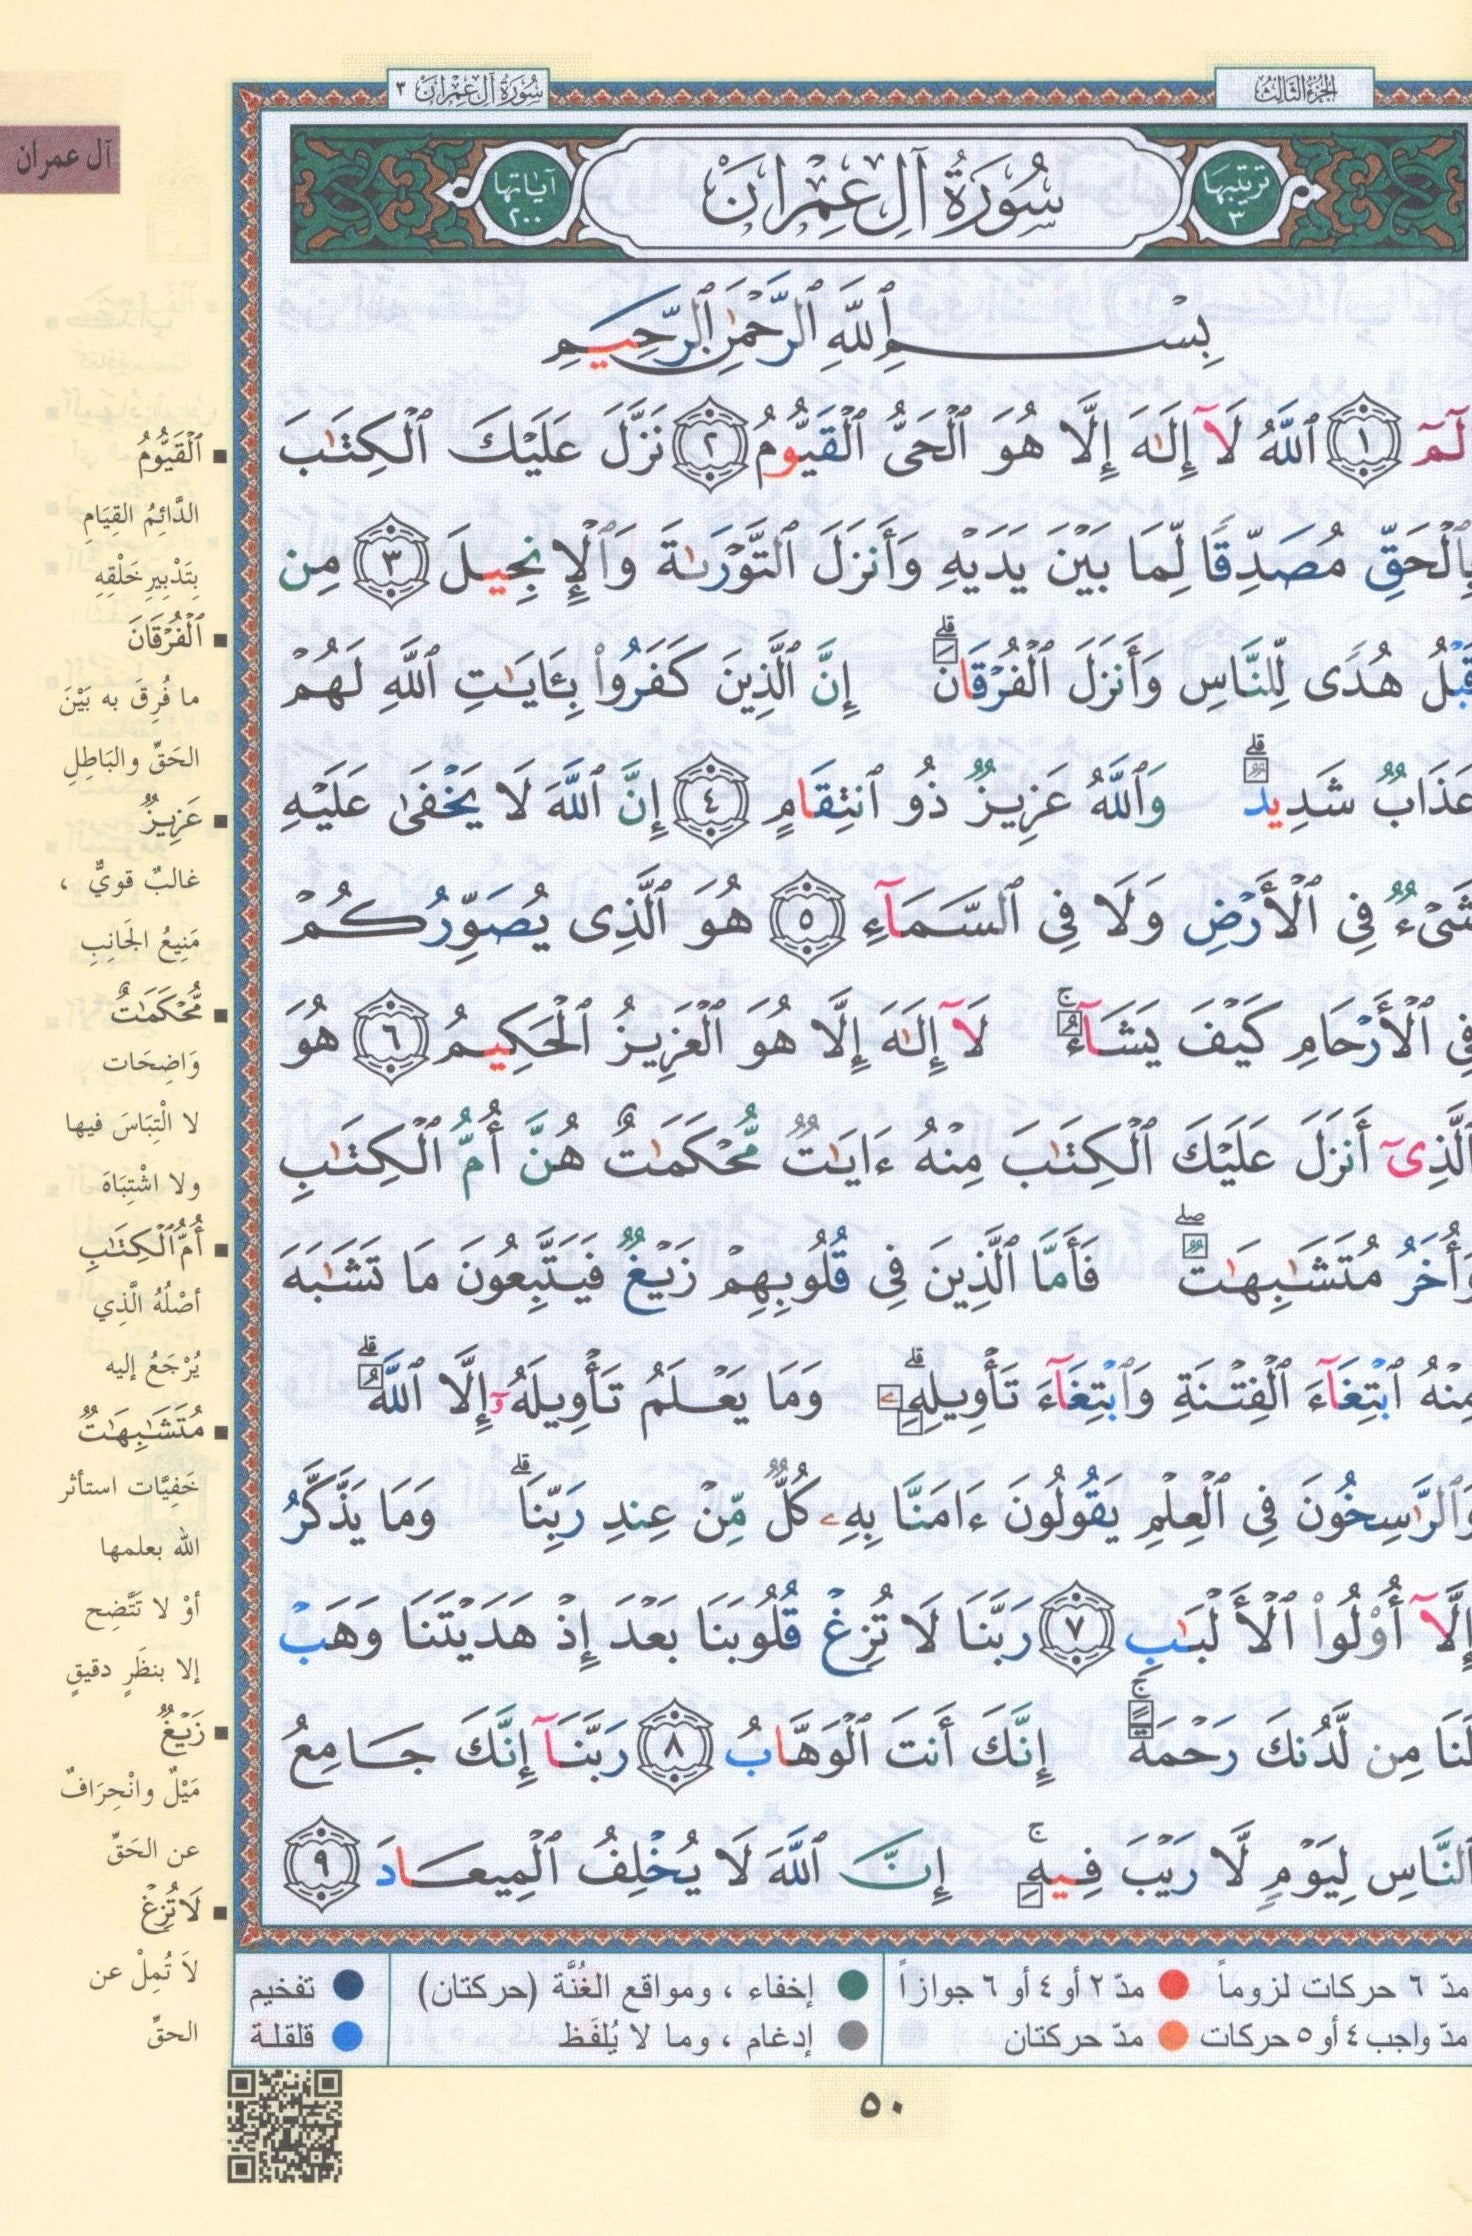 الجزء الثالث
سورة آل عمران ٣
آل عمران
ترتيبها ٣
سُورَةُ آلِ عِمْرَانَ
آياتها ٢٠٠
بِسْمِ ٱللَّهِ ٱلرَّحْمَٰنِ ٱلرَّحِيمِ
لٓمٓ ١ ٱللَّهُ لَآ إِلَٰهَ إِلَّا هُوَ ٱلْحَىُّ ٱلْقَيُّومُ ٢ نَزَّلَ عَلَيْكَ ٱلْكِتَٰبَ
بِٱلْحَقِّ مُصَدِّقًا لِّمَا بَيْنَ يَدَيْهِ وَأَنزَلَ ٱلتَّوْرَىٰةَ وَٱلْإِنجِيلَ ٣ مِن
قَبْلُ هُدًى لِّلنَّاسِ وَأَنزَلَ ٱلْفُرْقَانَ ۗ إِنَّ ٱلَّذِينَ كَفَرُوا۟ بِـَٔايَٰتِ ٱللَّهِ لَهُمْ
عَذَابٌ شَدِيدٌ ۗ وَٱللَّهُ عَزِيزٌ ذُو ٱنتِقَامٍ ٤ إِنَّ ٱللَّهَ لَا يَخْفَىٰ عَلَيْهِ
شَىْءٌ فِى ٱلْأَرْضِ وَلَا فِى ٱلسَّمَآءِ ٥ هُوَ ٱلَّذِى يُصَوِّرُكُمْ
فِى ٱلْأَرْحَامِ كَيْفَ يَشَآءُ ۚ لَآ إِلَٰهَ إِلَّا هُوَ ٱلْعَزِيزُ ٱلْحَكِيمُ ٦ هُوَ
ٱلَّذِىٓ أَنزَلَ عَلَيْكَ ٱلْكِتَٰبَ مِنْهُ ءَايَٰتٌ مُّحْكَمَٰتٌ هُنَّ أُمُّ ٱلْكِتَٰبِ
وَأُخَرُ مُتَشَٰبِهَٰتٌ ۖ فَأَمَّا ٱلَّذِينَ فِى قُلُوبِهِمْ زَيْغٌ فَيَتَّبِعُونَ مَا تَشَٰبَهَ
مِنْهُ ٱبْتِغَآءَ ٱلْفِتْنَةِ وَٱبْتِغَآءَ تَأْوِيلِهِۦ ۗ وَمَا يَعْلَمُ تَأْوِيلَهُۥٓ إِلَّا ٱللَّهُ ۗ
وَٱلرَّٰسِخُونَ فِى ٱلْعِلْمِ يَقُولُونَ ءَامَنَّا بِهِۦ كُلٌّ مِّنْ عِندِ رَبِّنَا ۗ وَمَا يَذَّكَّرُ
إِلَّآ أُو۟لُوا۟ ٱلْأَلْبَٰبِ ٧ رَبَّنَا لَا تُزِغْ قُلُوبَنَا بَعْدَ إِذْ هَدَيْتَنَا وَهَبْ
لَنَا مِن لَّدُنكَ رَحْمَةً ۚ إِنَّكَ أَنتَ ٱلْوَهَّابُ ٨ رَبَّنَآ إِنَّكَ جَامِعُ
ٱلنَّاسِ لِيَوْمٍ لَّا رَيْبَ فِيهِ ۚ إِنَّ ٱللَّهَ لَا يُخْلِفُ ٱلْمِيعَادَ ٩
ٱلْقَيُّومُ
الدَّائِمُ القِيَامِ
بِتَدْبِيرِ خَلْقِهِ
ٱلْفُرْقَانَ
ما فُرِقَ به بَيْنَ
الحَقِّ والبَاطِلِ
عَزِيزٌ
غالبٌ قويٌّ ،
مَنِيعُ الجَانِبِ
مُّحْكَمَٰتٌ
وَاضِحَات
لا الْتِبَاسَ فيها
ولا اشْتِبَاهَ
أُمُّ ٱلْكِتَٰبِ
أصْلُهُ الَّذِي
يُرْجَعُ إليه
مُتَشَٰبِهَٰتٌ
خَفِيَّات استأثر
الله بعلمها
أوْ لا تَتَّضِح
إلا بنظَرٍ دقيقٍ
زَيْغٌ
مَيْلٌ وانْحِرَافٌ
عن الحَقِّ
لَا تُزِغْ
لاَ تُمِلْ عن
الحقِّ
مدّ ٦ حركات لزوماً ● مدّ ٢ أو ٤ أو ٦ جوازاً ● إخفاء ، ومواقع الغُنَّة (حركتان) ● تفخيم
مدّ واجب ٤ أو ٥ حركات ● مدّ حركتان ● إدغام ، وما لا يُلفَظ ● قلقلة
٥٠